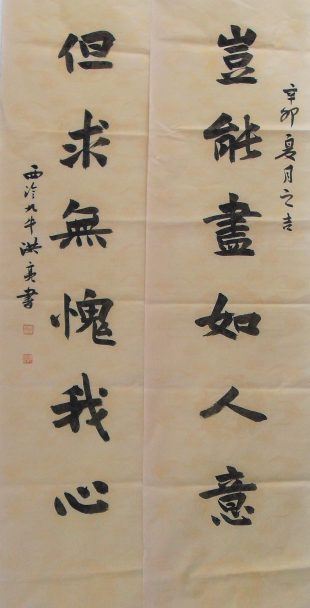 辛卯夏月之吉
豈能盡如人意
但求無愧我心
西泠九牛洪亮書